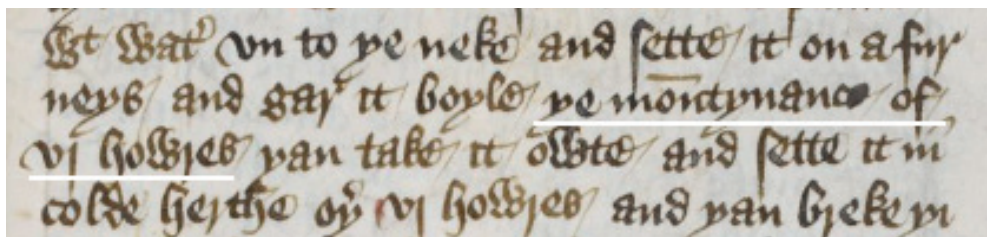 wt wat' vn to ye neke and sette it on a fur
neys and gar it boyle ye mōntynance of
vi howres yan take it owte and sette it in
colde herthe oy' vi howres and yan breke yi